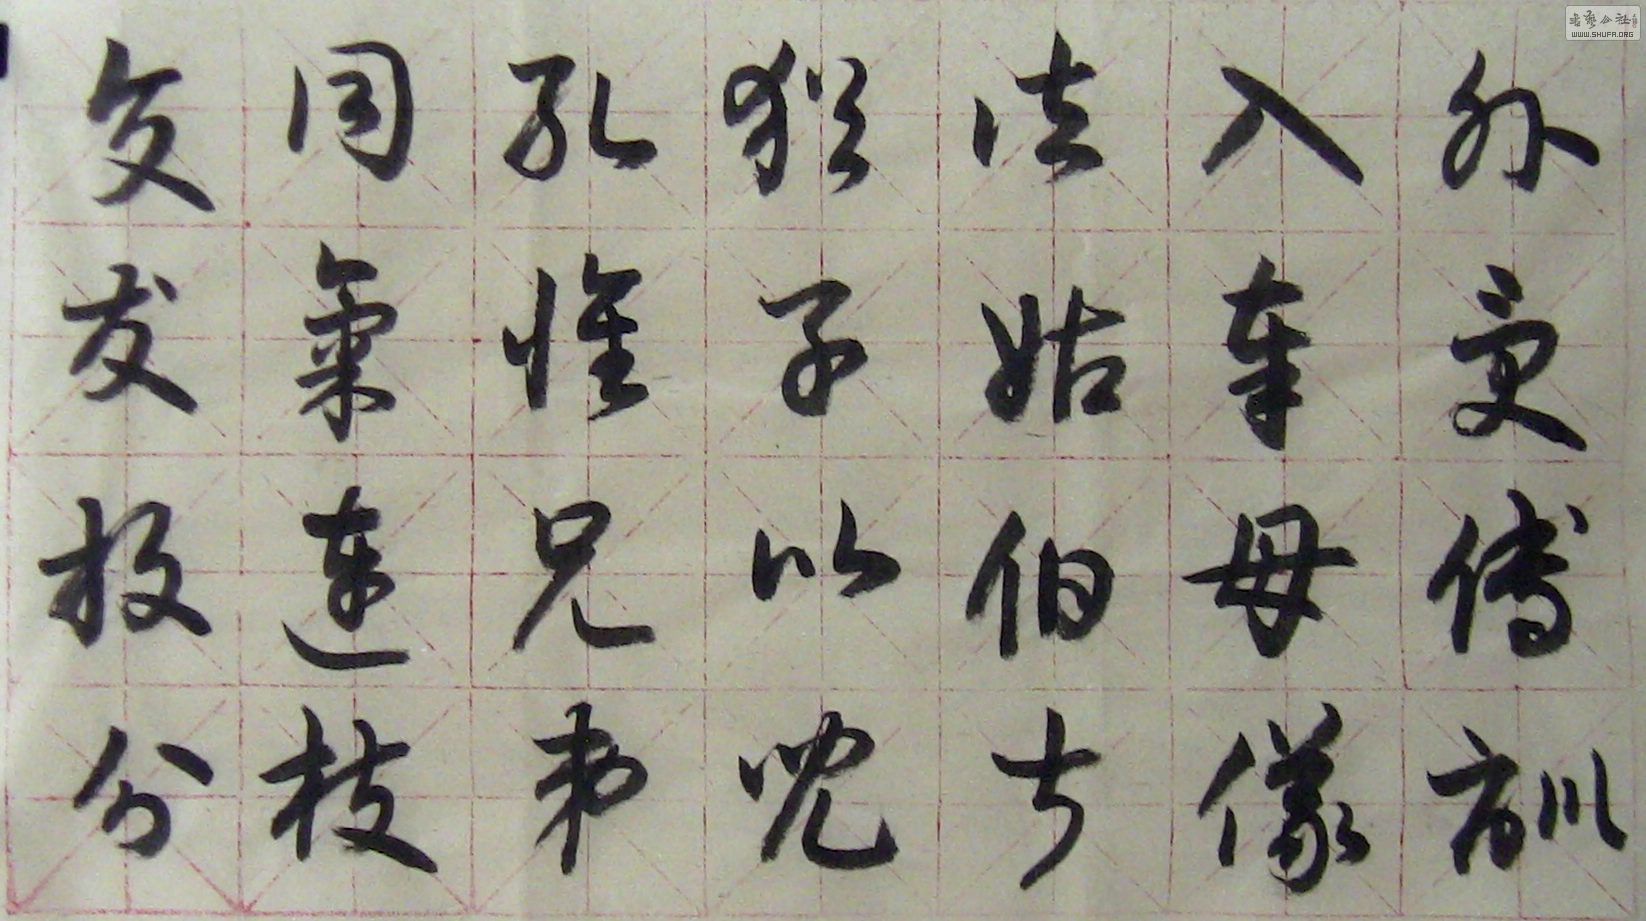 外受傅訓
入奉母儀
諸姑伯叔
猶子比兒
孔懷兄弟
同氣連枝
交友投分
書藝公社
WWW.SHUFA.ORG